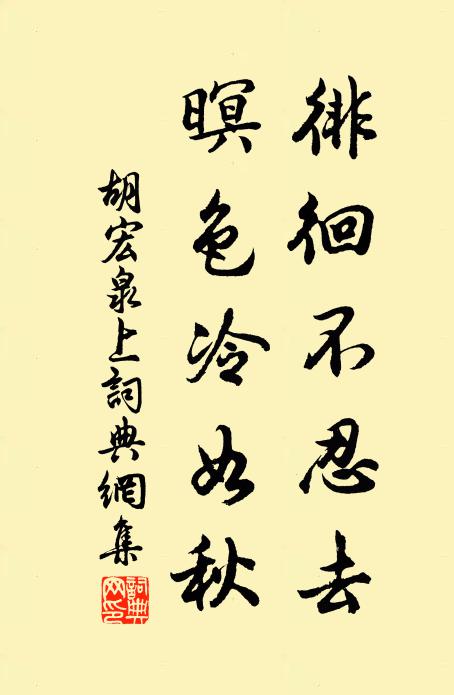 徘徊不忍去
暝色冷如秋
胡宏泉上詞典網集
詞典網印